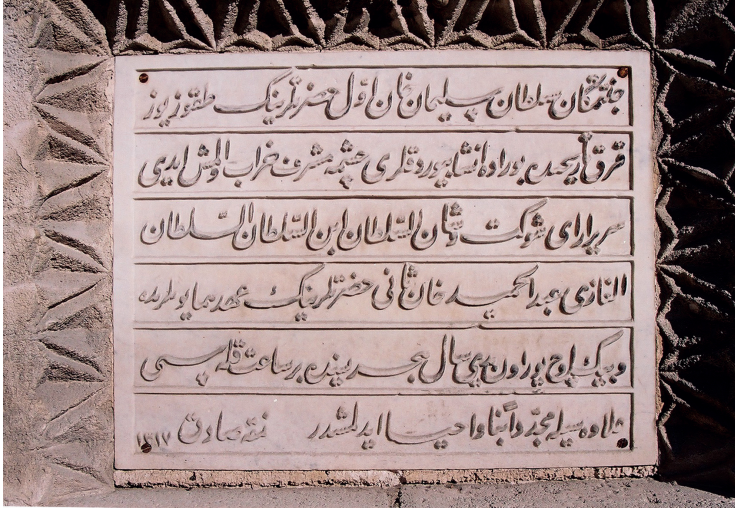 جنتمكان سلطان سليمان خان اول حضرتلرينك طقوز يوز
قرق آريخنده بوراده انشا بيورد قلرى چشمه مشرف خراب اولمش ايدى
سريراراى شوكت وشان السلطان ابن السلطان السلطان
الغازى عبد الحميد خان ثانى حضرتلرينك عهد همايونلرنده
وبيك اوچ يوز اون يدى سال هجريسنده بر ساعت قله سى
علاوه سيله مجدداً بنا و احيا ايدلمشدر نمقه صادق ١٣١٧